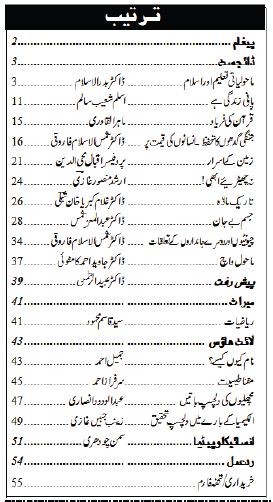 ترتیب
پیغام 2
ڈائجسٹ 3
ماحولیاتی تعلیم اور اسلام ڈاکٹر بدرالاسلام 3
پانی زندگی ہے اسلم شعیب سالم 11
قرآن کی فریاد ماہر القادری 15
جنگلی گدھوں کا تحفظ انسانوں کی قیمت پر ڈاکٹر شمس الاسلام فاروقی 16
زمین کے اسرار پروفیسر اقبال محی الدین 21
نہ چھیڑئیے ابھی! ارشد منصور غازی 24
تاریک مادہ ڈاکٹر غلام کبریا خان شبلی 26
جسم بے جان ڈاکٹر عبدالمعز شمس 28
چیونٹیوں اور دوسرے جانداروں کے تعلقات ڈاکٹر شمس الاسلام فاروقی 34
ماحول واچ ڈاکٹر جاوید احمد کامٹوی 37
پیش رفت ڈاکٹر عبیدالرحمٰن 39
میراث 41
ریاضیات سید قاسم محمود 41
لائٹ ھاؤس 43
نام کیوں کیسے؟ جمیل احمد 43
مقناطیسیت سرفراز احمد 45
مچھلیوں کی دلچسپ باتیں عبدالودود انصاری 47
الکیمیا کے بارے میں دلچسپ تحقیق زینب جمیں غازی 49
انسائیکلوپیڈیا سمن چودھری 51
ردعمل 54
خریداری/تحفہ فارم 55